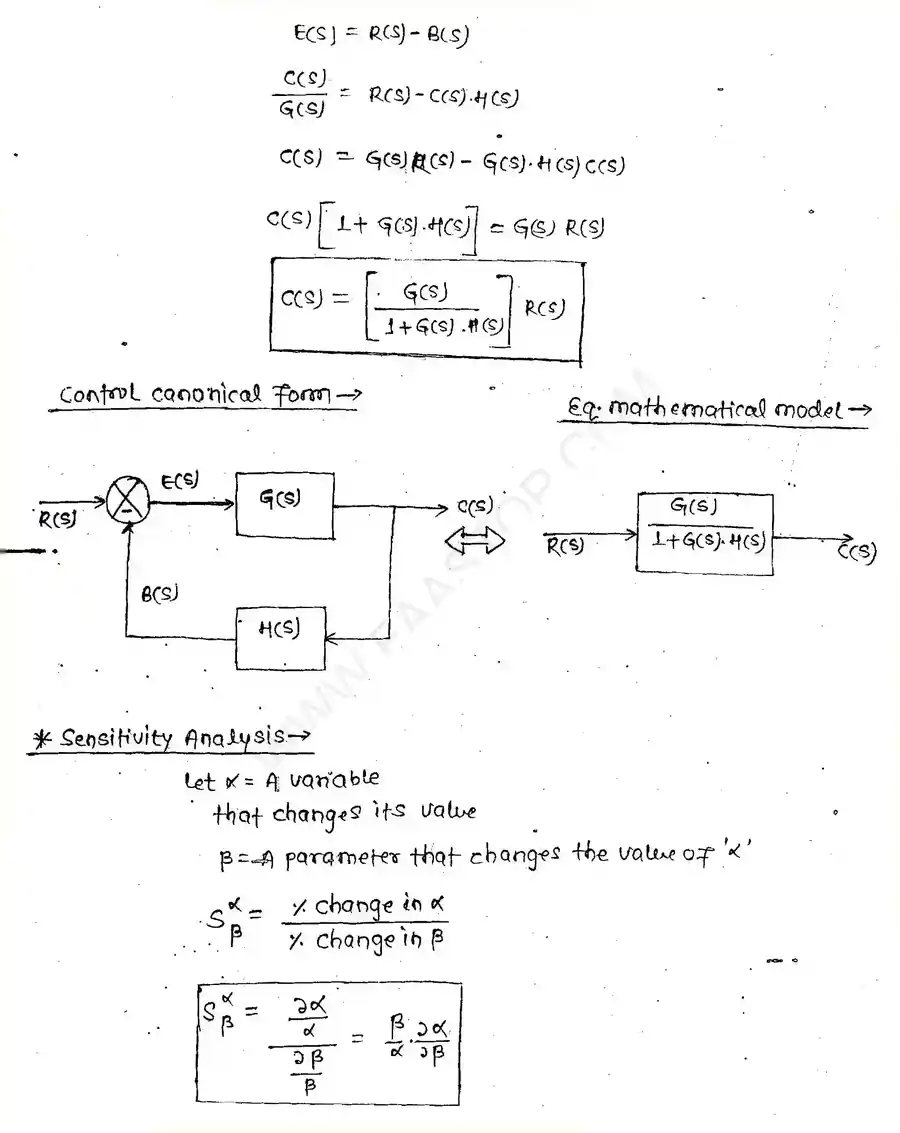 E(S) = R(S) - B(S)
C(S)/G(S) = R(S) - C(S).H(S)
C(S) = G(S) R(S) - G(S).H(S) C(S)
C(S) [1 + G(S).H(S)] = G(S) R(S)
C(S) = [G(S) / 1 + G(S).H(S)] R(S)
Control canonical Form →
Eq. mathematical model →
R(S)
-
E(S)
G(S)
C(S)
B(S)
H(S)
R(S)
G(S) / 1 + G(S).H(S)
C(S)
* Sensitivity Analysis →
Let α = A variable
that changes its value
β = A parameter that changes the value of 'α'
S^α_β = % change in α / % change in β
S^α_β = (∂α/α) / (∂β/β) = β/α . ∂α/∂β
WWW.RAASHOP.COM